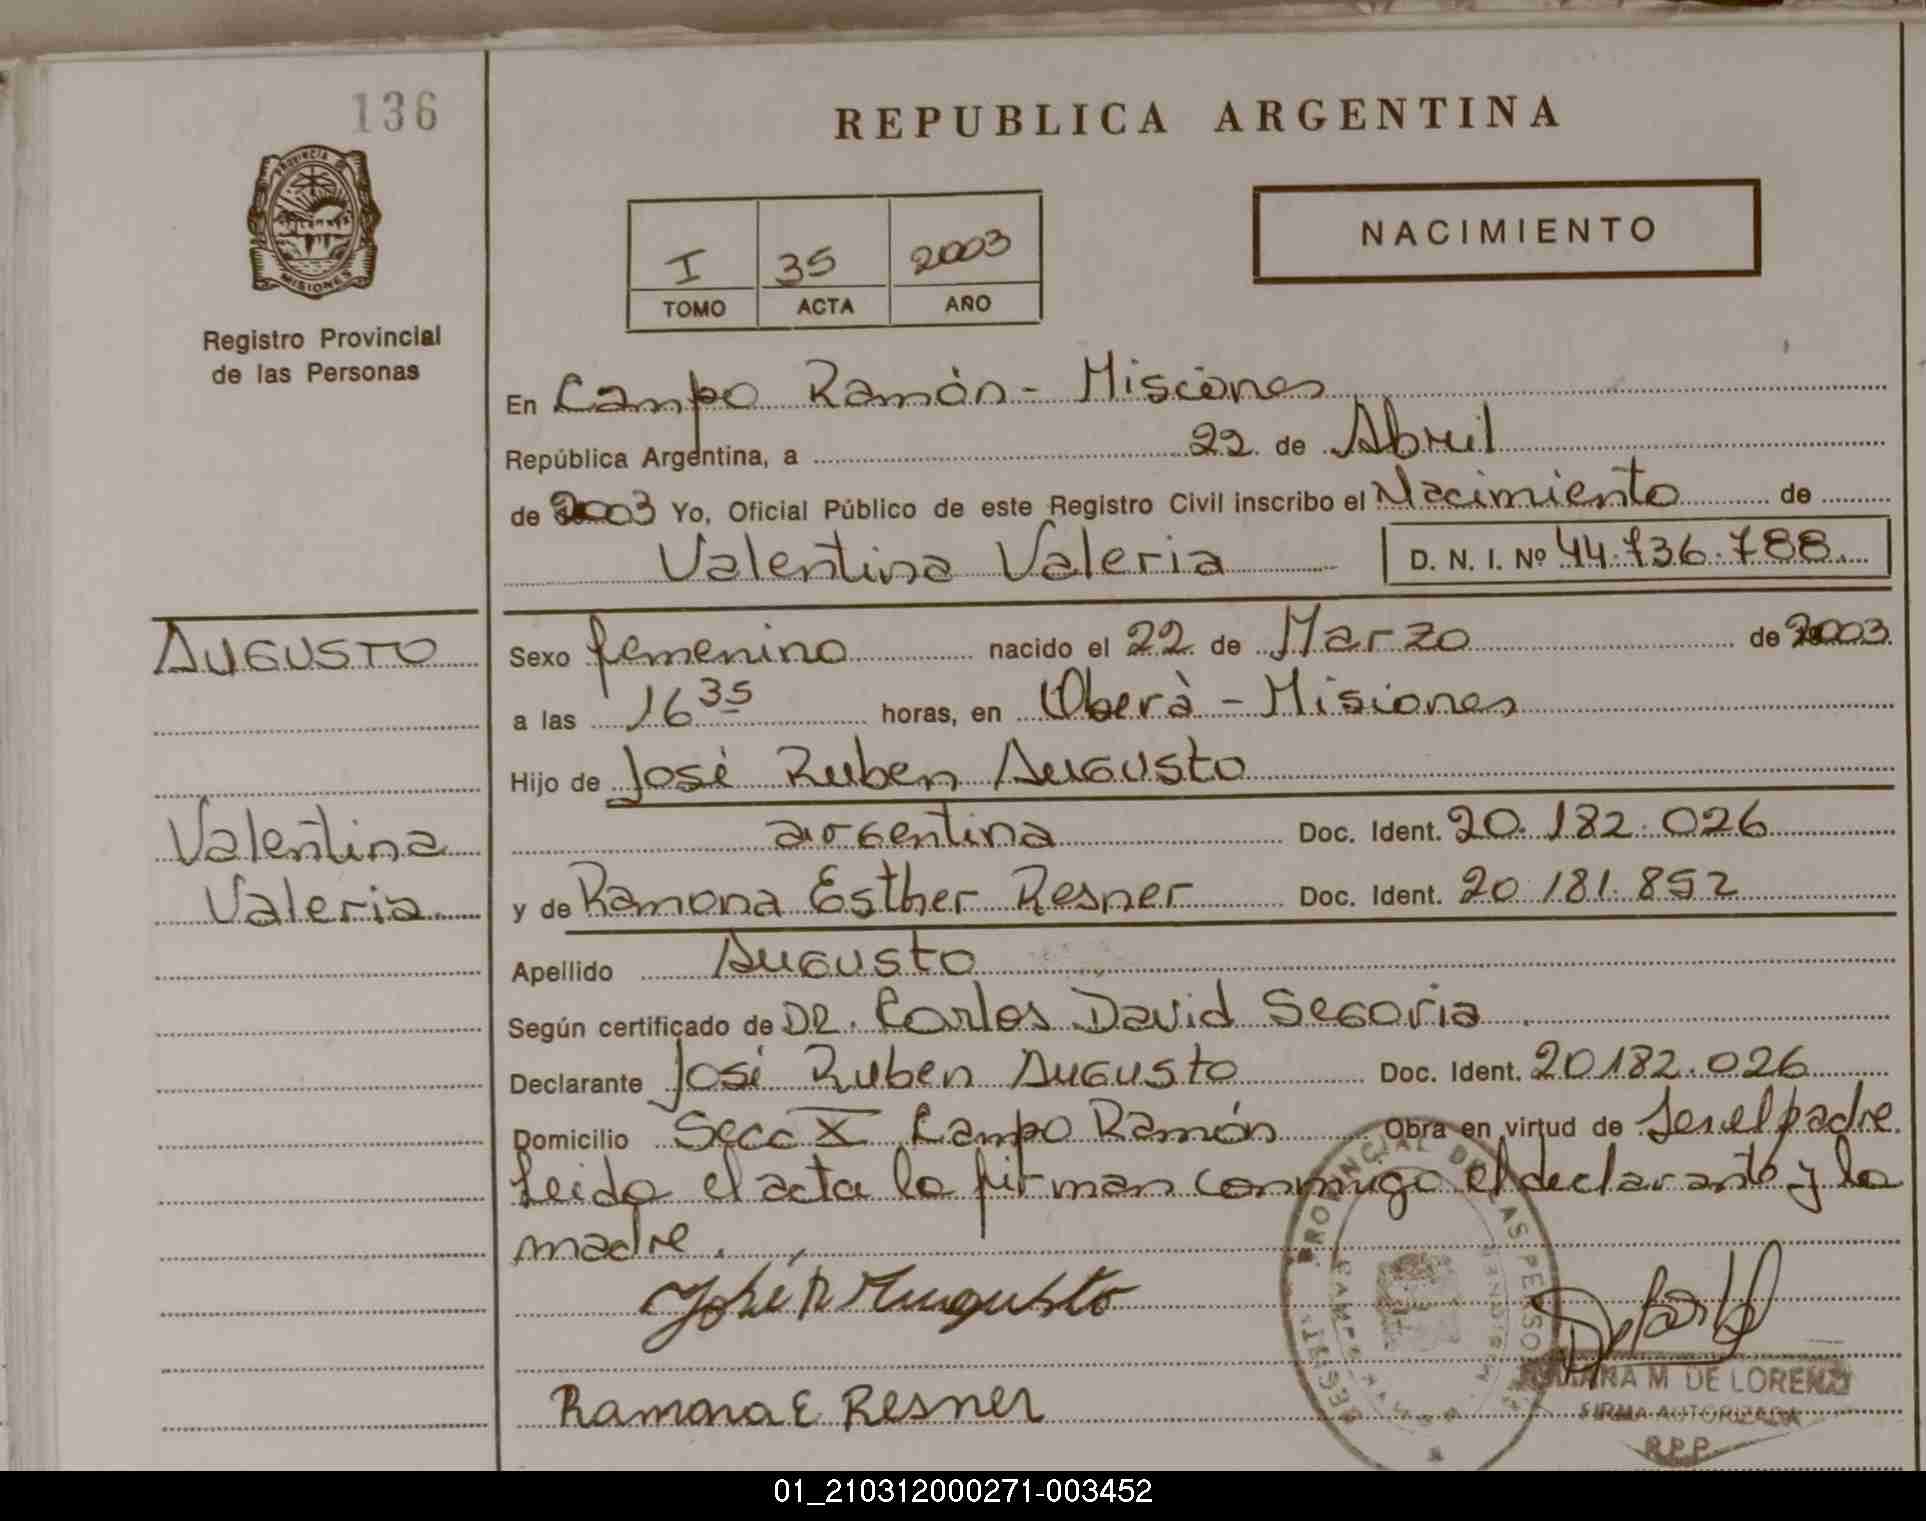 136
REPUBLICA ARGENTINA
PROVINCIA DE MISIONES
Registro Provincial
de las Personas
I 35 2003
TOMO ACTA AÑO
NACIMIENTO
En Campo Ramón - Misiones
República Argentina, a 22 de Abril
de 2003 Yo, Oficial Público de este Registro Civil inscribo el Nacimiento de
Valentina Valeria D. N. I. Nº 44.736.788
AUGUSTO
Sexo femenino nacido el 22 de Marzo de 2003
a las 16 35 horas, en Oberà - Misiones
Hijo de José Ruben Augusto
Valentina
argentina Doc. Ident. 20.182.026
Valeria
y de Ramona Esther Resner Doc. Ident. 20.181.852
Apellido Augusto
Según certificado de DR. Carlos David Segovia
Declarante José Ruben Augusto Doc. Ident. 20.182.026
Domicilio Secc X Campo Ramón Obra en virtud de ser el padre
Leida el acta la firman conmigo el declarante y la
madre.
José R Augusto
Ramona E Resner
PROVINCIAL DE LAS PERSONAS
M DE LORENZI
FIRMA AUTORIZADA
R.P.P.
01_210312000271-003452